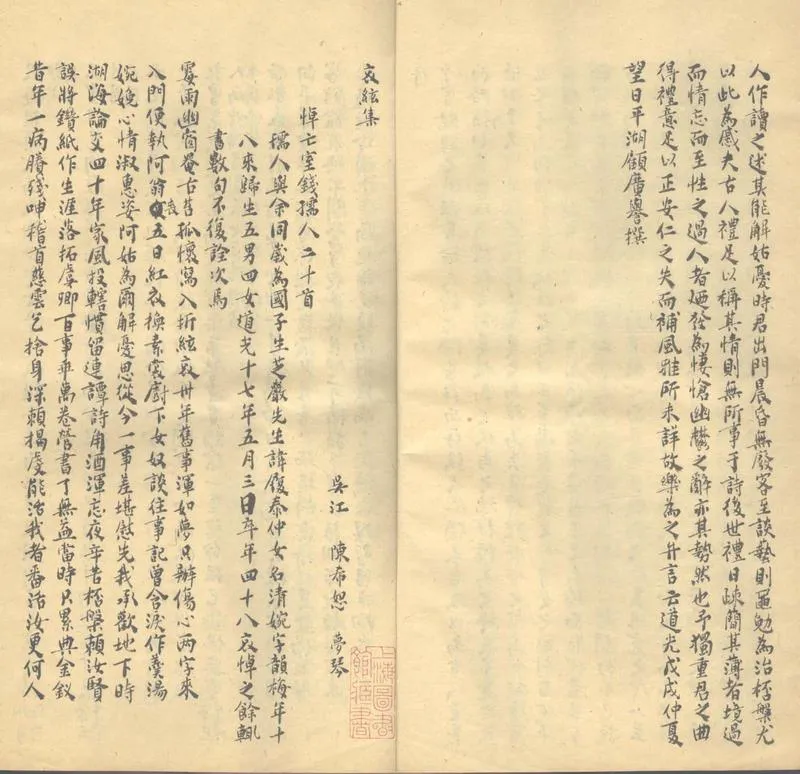 人作讀之述其能解姑憂時君出門晨昏無廢客至談藝則黽勉為治杯槃尤
以此為感夫古人禮足以稱其情則無所事于詩後世禮日疎簡其薄者境過
而情忘而至性之過人者迺發為悽愴幽鬱之辭亦其勢然也予獨重君之曲
得禮意足以正安仁之失而補風雅所未詳故樂為之弁言云道光戊戌仲夏
望日平湖顧廣譽撰
哀絃集
吳江 陳希恕 夢琴
悼亡室錢孺人二十首
孺人與余同歲為國子生芝巖先生諱復泰仲女名清婉字韻梅年十
八來歸生五男四女道光十七年五月三日卒年四十八哀悼之餘輒
書數句不復詮次焉
霎雨幽窗罨古苔孤懷寫入折絃哀卅年舊事渾如夢只辦傷心兩字來
入門便執阿翁喪五日紅衣換素裳廚下女奴談往事記曾含淚作羹湯
婉娩心情淑惠姿阿姑為爾解憂思從今一事差堪慰先我承歡地下時
湖海論交四十年家風投轄慣留連譚詩角酒渾忘夜辛苦杯槃賴汝賢
誤將鑽紙作生涯落拓虞卿百事乖萬卷營書了無益當時只累典金釵
昔年一病賸殘呻稽首慈雲乞捨身深賴搘虔能活我者番活汝更何人
上海圖書館藏書